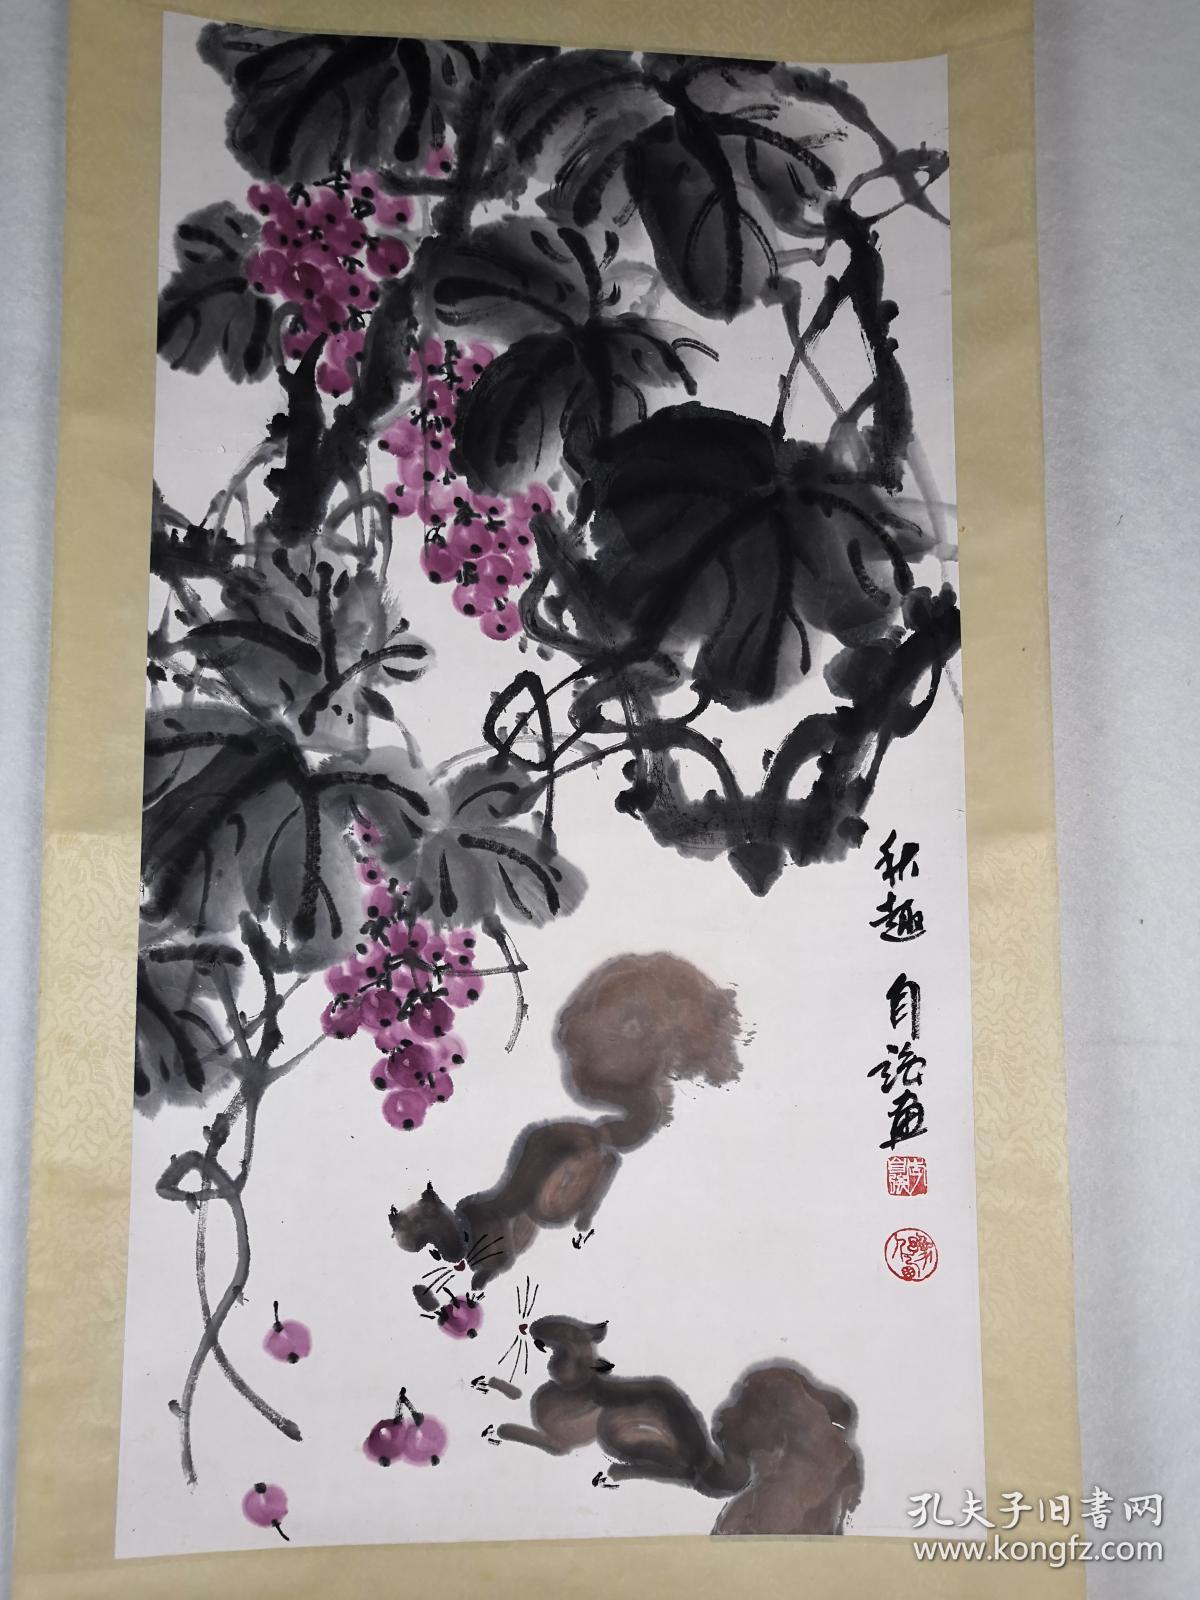 秋趣 自強画
李自強
孔夫子旧書网
www.kongfz.com